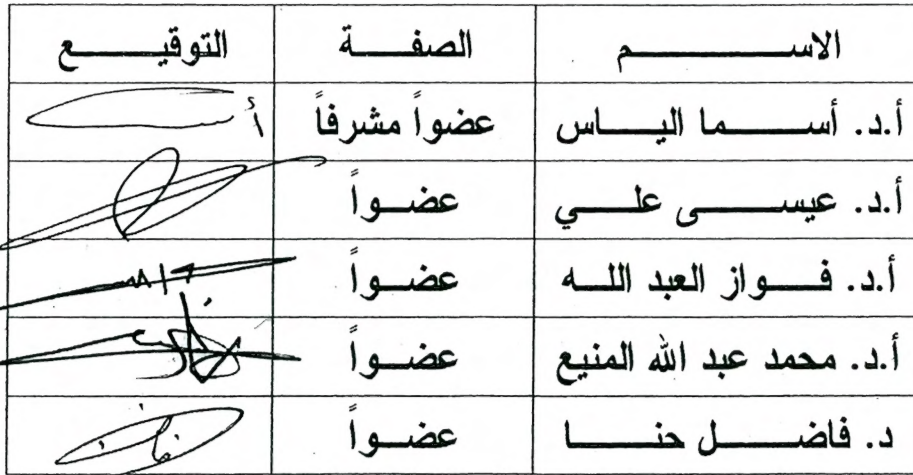 الاسم الصفة التوقيع
أ.د. أسما الياس عضواً مشرفاً
أ.د. عيسى علي عضواً
أ.د. فواز العبد الله عضواً
أ.د. محمد عبد الله المنيع عضواً
د. فاضل حنا عضواً